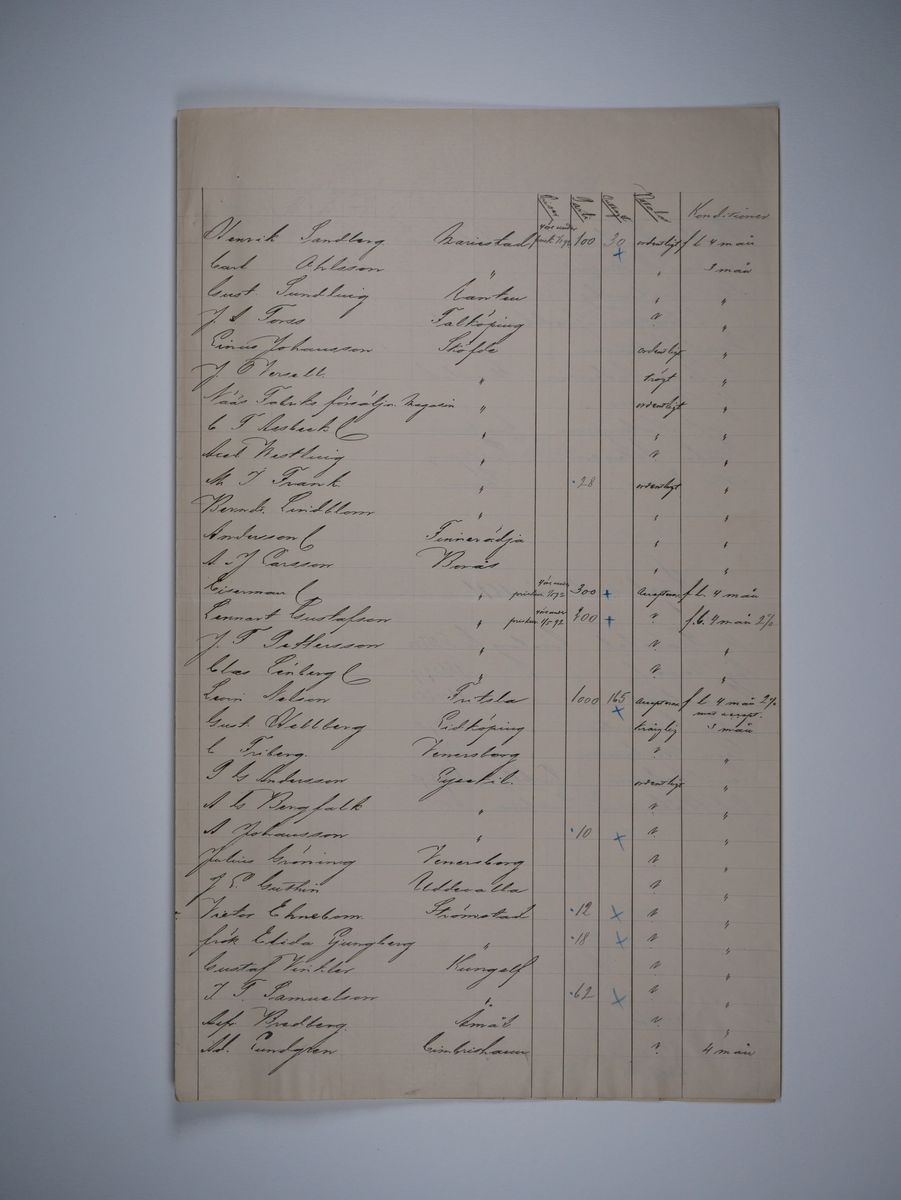 Konditioner
Henrik Sandberg Mariestad 100 30 ordentligt f b 4 mån
Carl Ohlsson " " 3 mån
Gust. Lundberg " "
J A Torss Falköping " "
Johansson Slöfde ordentligt "
J. O " trögt "
Nääs Fabriks försäljn. Magasin " ordentligt "
C F Aasbeck " " "
Axel Westling " " "
M J Frank " 28 ordentligt "
Bernh. Lindblom " " "
Andersson Finnerödja " "
A. J Carsson Borås " "
Eiserman " 300 + f. b. 4 mån
Lennart Gustafson " + " f. b. 4 mån 2%
J. F Pettersson " " "
Clas " " "
Leon Nelson Fritsla 1000 165 f b 4 mån 2%
+ 3 mån
Gust. Hellberg Lidköping krånglig
C Friberg. Venersborg " "
P G Andersson Lysekil. ordentligt "
A G Bergfalk " " "
A Johansson " 10 + " "
Julius Gröning Venersborg " "
J E Gustin Uddevalla " "
Victor Ehnebom Strömstad 12 + " "
frök Elida Ljungberg " 18 + " "
Gustaf Winkler Kungelf " "
J F. Samuelson " 62 + " "
Alfr Bredberg. Åmål " "
Ad. Lundgren Cimbrishamn " 4 mån